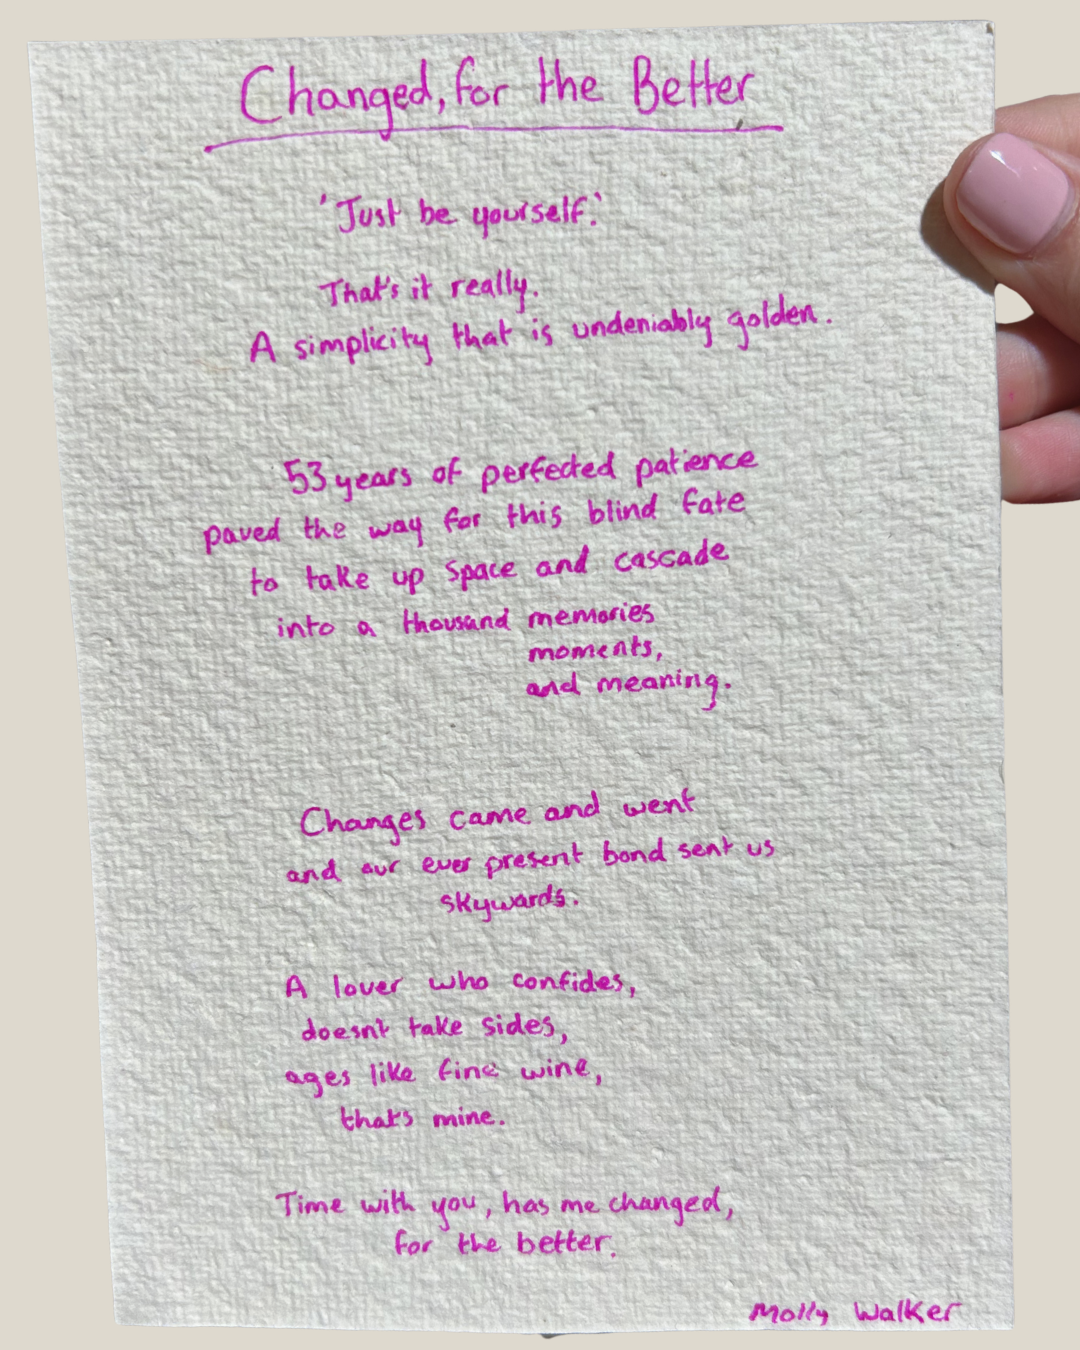 Changed, for the Better
'Just be yourself.'
That's it really.
A simplicity that is undeniably golden.
53 years of perfected patience
paved the way for this blind fate
to take up space and cascade
into a thousand memories
moments,
and meaning.
Changes came and went
and our ever present bond sent us
skywards.
A lover who confides,
doesn't take sides,
ages like fine wine,
that's mine.
Time with you, has me changed,
for the better.
Molly Walker